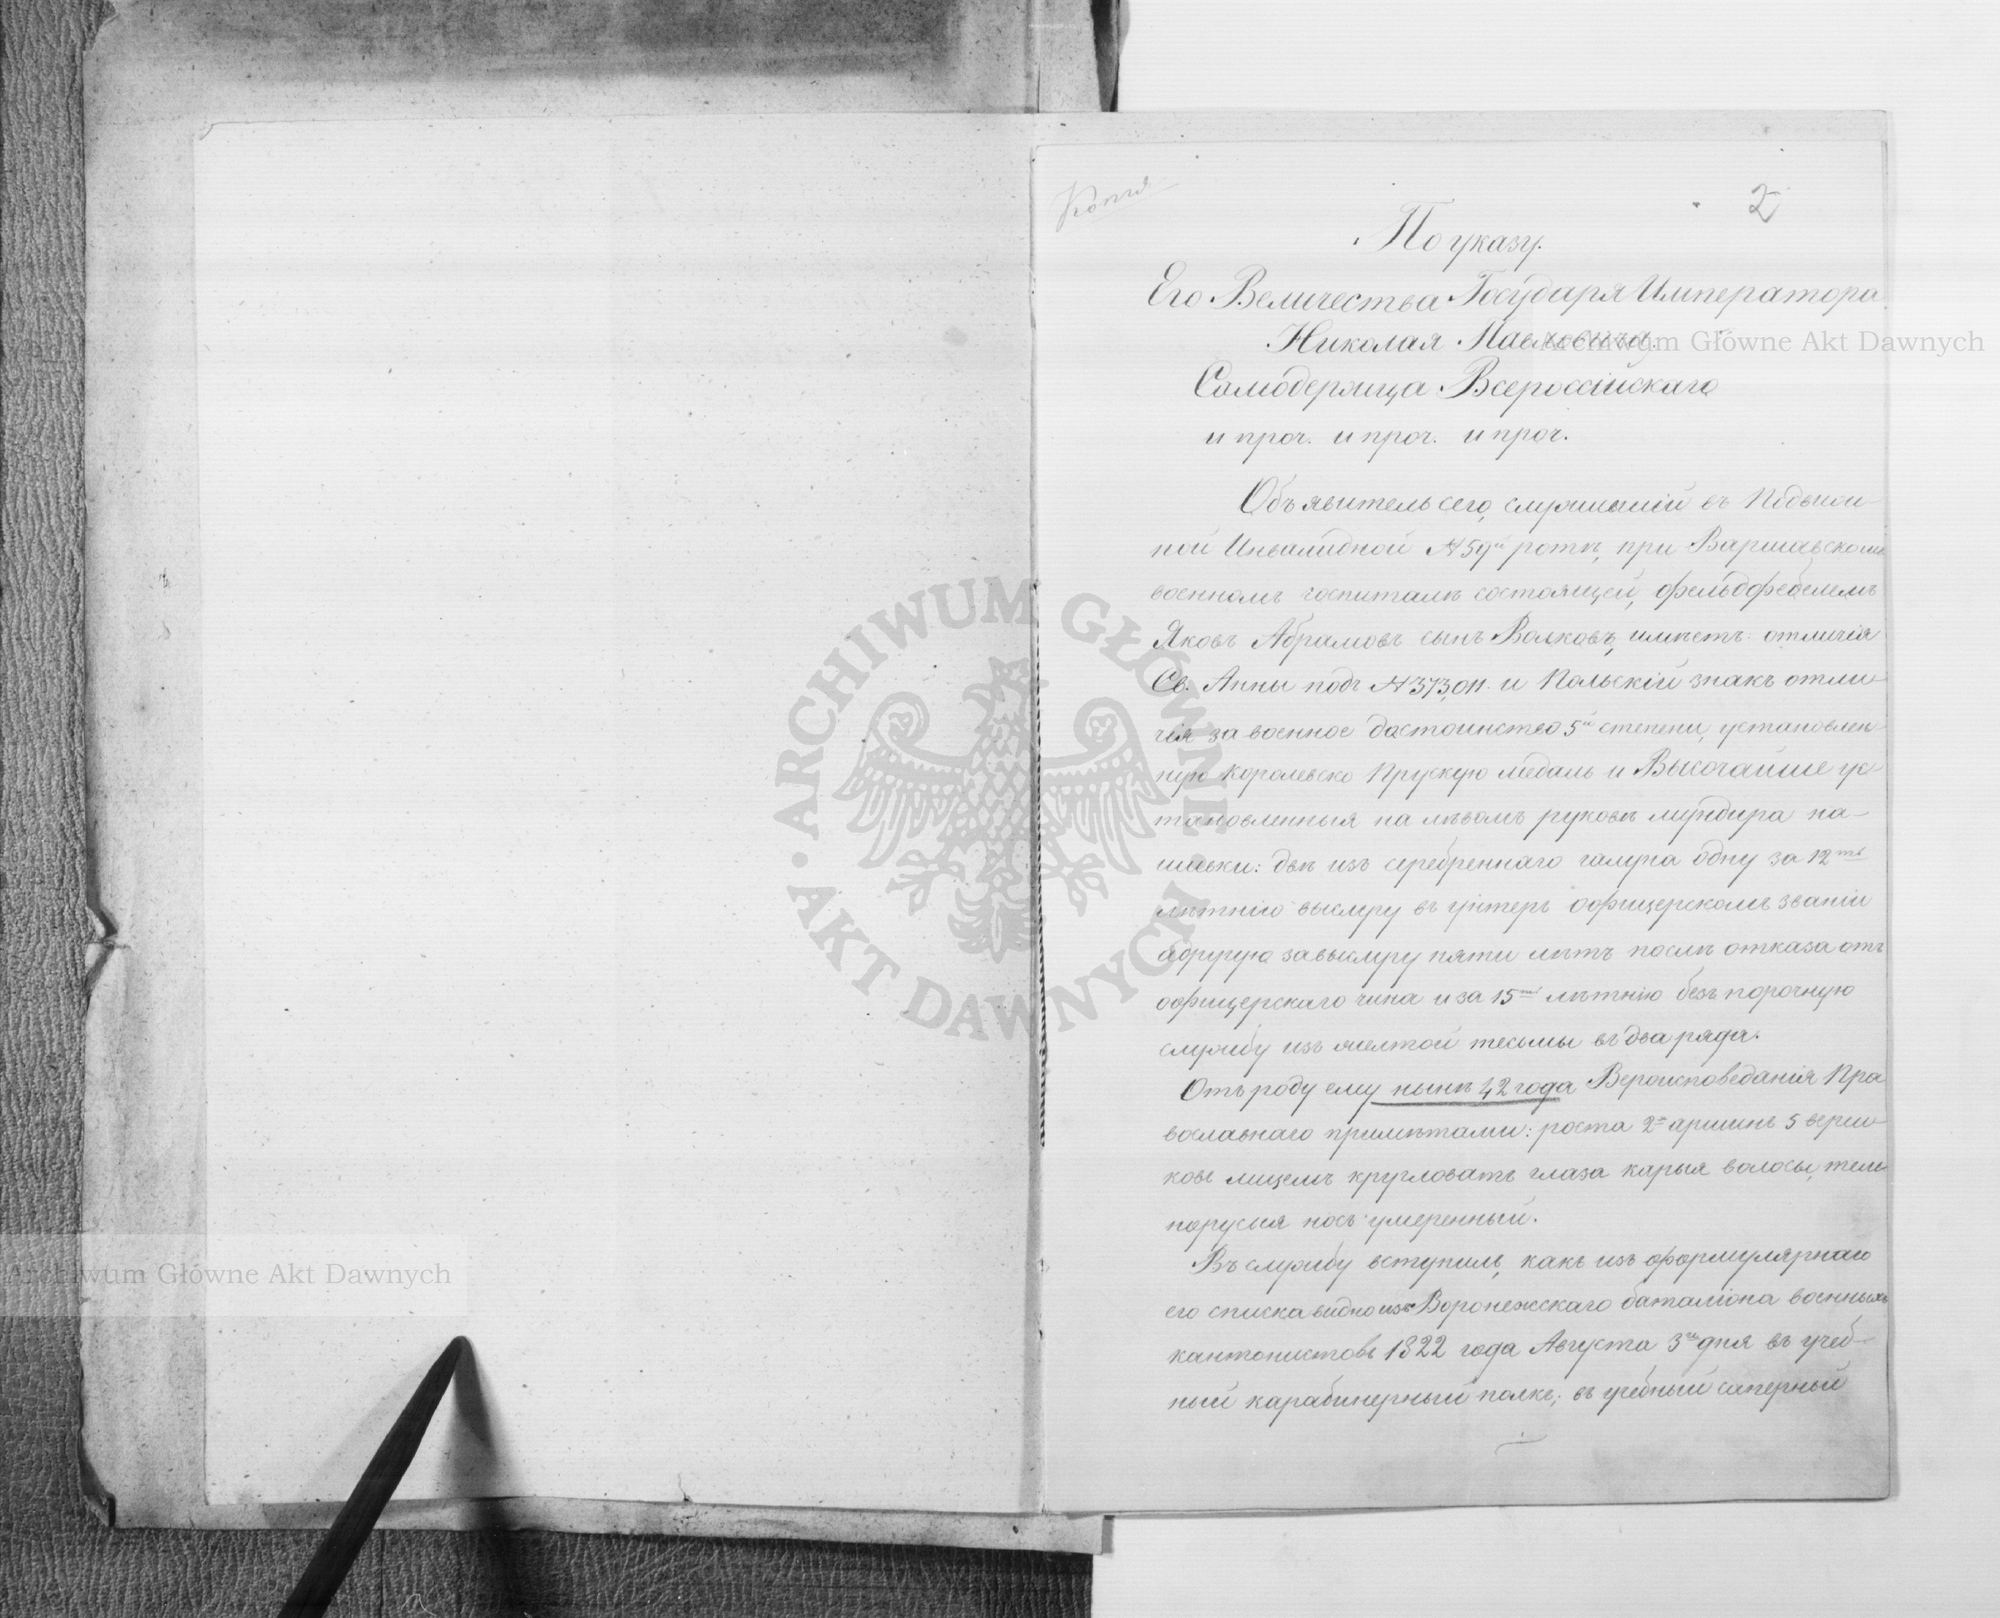 Копія
2
По указу.
Его Величества Государя Императора
Николая Павловича.
Самодержца Всероссійскаго
и проч. и проч. и проч.
Объявитель сего, служившій въ Подвиж-
ной Инвалидной № 59й ротѣ, при Варшавскомъ
военномъ госпиталѣ состоящей, фельдфебелемъ
Яковъ Абрамовъ сынъ Волковъ, имѣетъ отличія
Св. Анны подъ № 373,011. и Польскій знакъ отли-
чія за военное достоинство 5й степени, установлен-
ную Королевско Прускую медаль и Высочайше ус-
тановленныя на лѣвомъ рукавѣ мундира на-
шивки: двѣ изъ серебреннаго галуна одну за 12ти
лѣтнію выслугу въ унтеръ офицерскомъ званіи
а другую за выслугу пяти лѣтъ послѣ отказа отъ
офицерскаго чина и за 15ти лѣтнію безъ порочную
службу изъ желтой тесьмы въ два ряда.
Отъ роду ему нынѣ 42 года Вероисповеданія Пра
вославнаго примѣтами: роста 2 аршинъ 5 верш-
ковъ лицемъ кругловатъ глаза карыя волосы, темно
порусыя носъ умеренный.
Въ службу вступилъ, какъ изъ формулярнаго
его списка видно изъ Воронежскаго баталіона военныхъ
кантонистовъ 1822 года Августа 3го дня въ учеб-
ный карабинерный полкъ; въ учебный саперный
Archiwum Główne Akt Dawnych
ARCHIWUM GŁÓWNE • AKT DAWNYCH •
Archiwum Główne Akt Dawnych